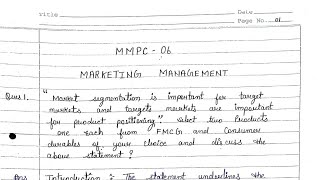 Title
Date
Page No. 01
MMPC - 06
MARKETING MANAGEMENT
Ques 1. "Market segmentation is important for target
markets and targets markets are important
for product positioning." select two Products
one each from FMCG and Consumer
durables of your choice and discuss the
above statement?
Ans Introduction : The statement underlines the